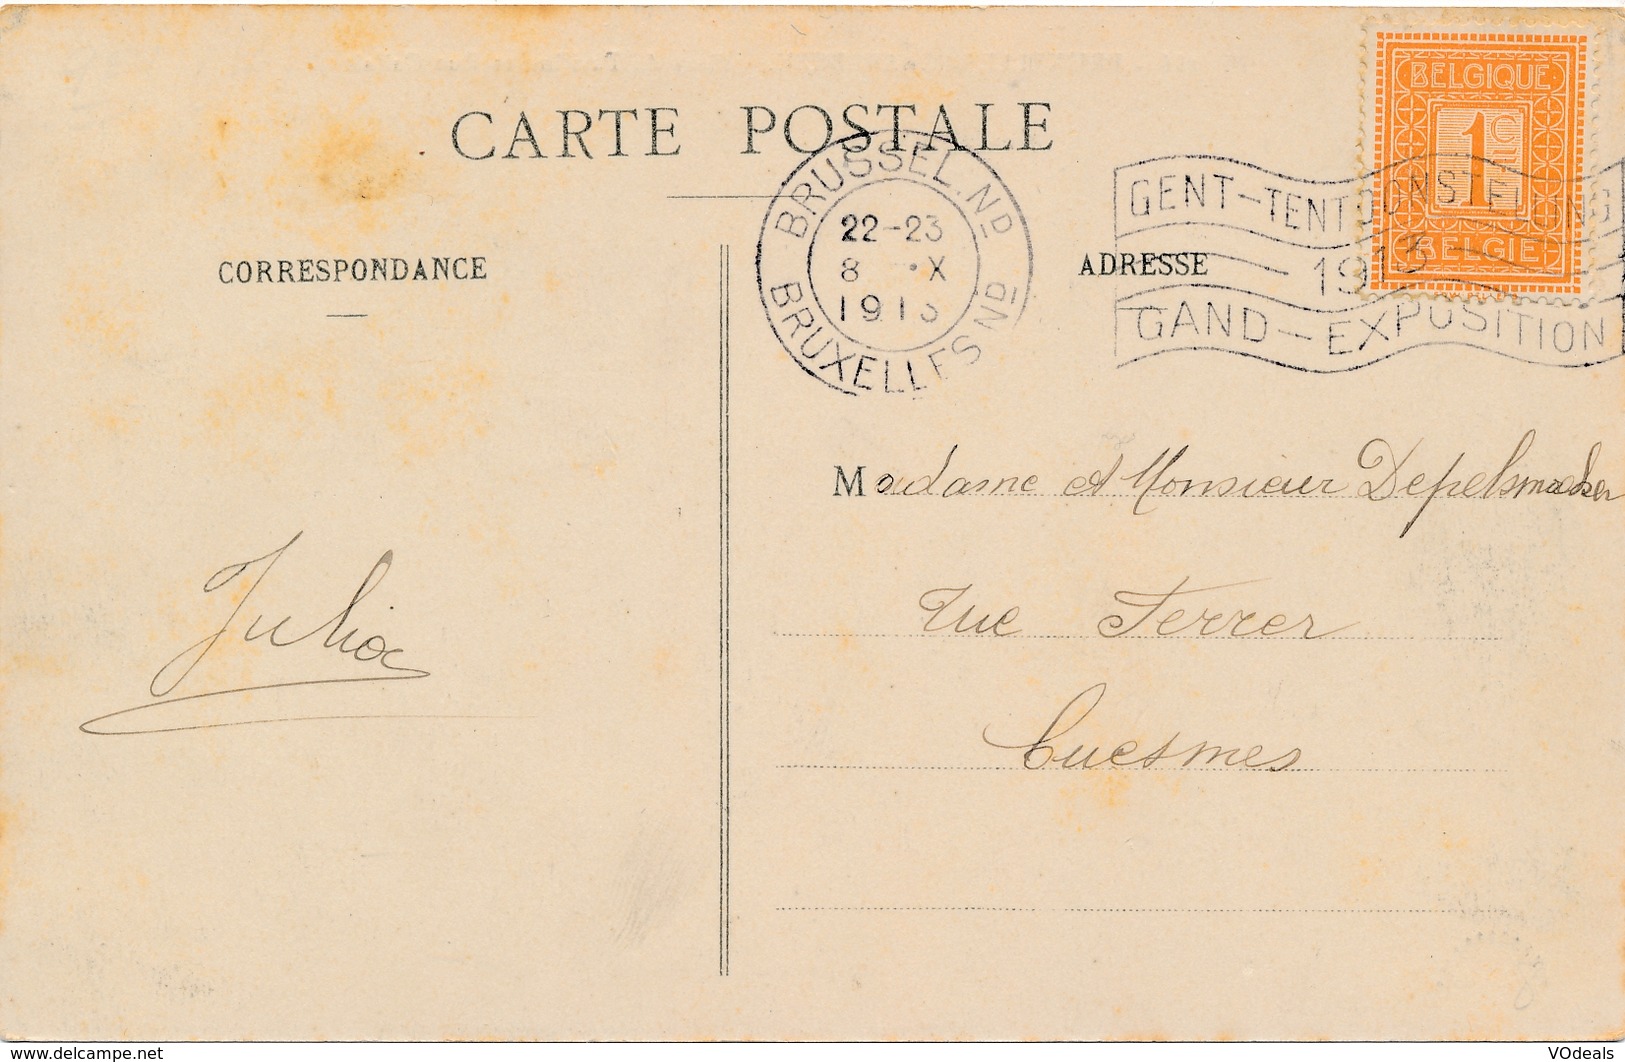 CARTE POSTALE
BELGIQUE
1 CE
BELGIË
BRUSSEL. ND
22-23
8 X
1913
BRUXELLES ND
GENT-TENTOONSTELLING
1913
GAND-EXPOSITION
CORRESPONDANCE
ADRESSE
Madame et Monsieur Depelsmaeker
rue Ferrer
Cuesmes
Julia
www.delcampe.net
VOdeals